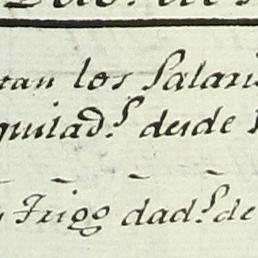 tan los Salari
quiad.s desde
Trigo dad.s de